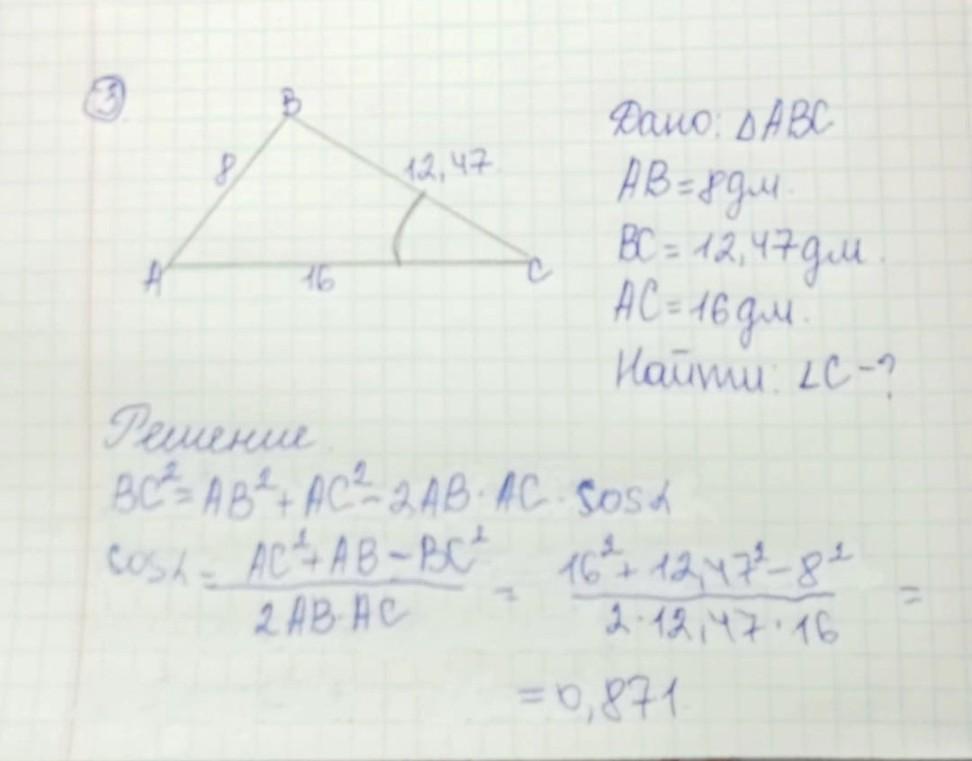 ③
B
8
12,47
A
16
C
Дано: ΔABC
AB=8дм.
BC=12,47дм.
AC=16дм.
Найти: ∠C-?
Решение
BC²=AB²+AC²-2AB·AC·cosα
cosα = AC²+AB-BC² / 2AB·AC = 16²+12,47²-8² / 2·12,47·16 =
=0,871